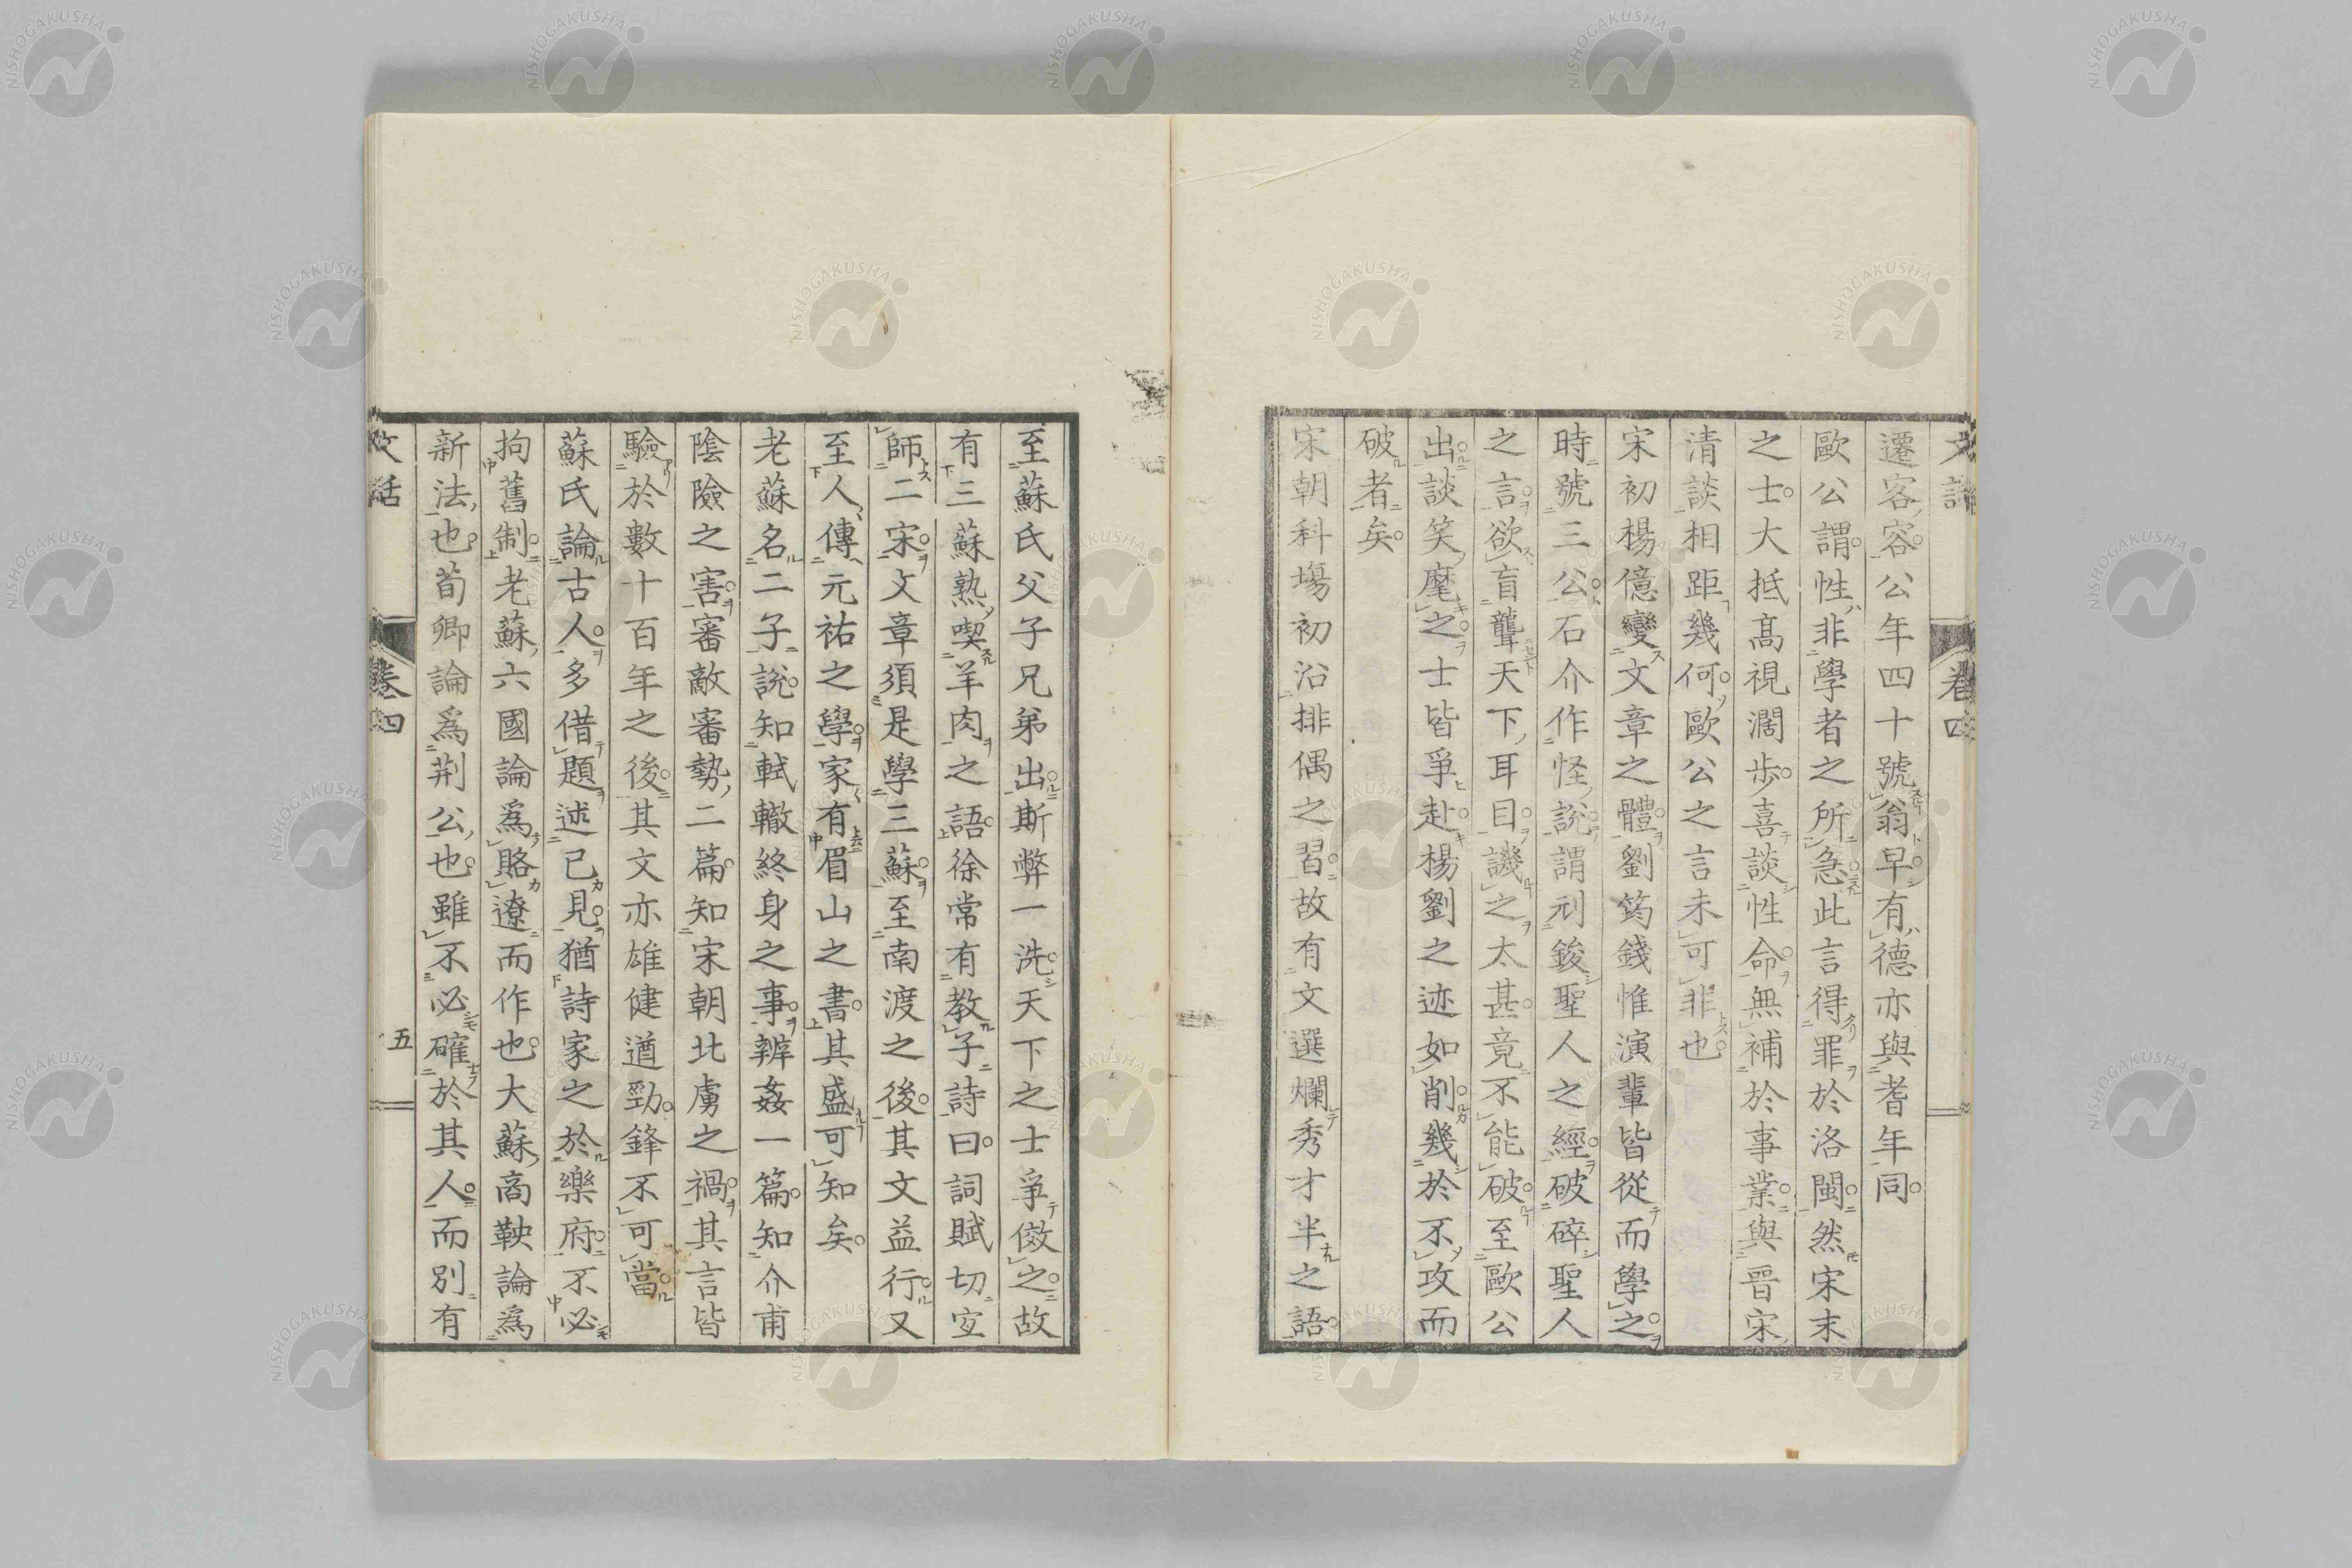 文話 卷四
遷客容公年四十號翁早有德亦與耆年同
歐公謂性非學者之所急此言得罪於洛閩然宋末
之士大抵高視濶歩喜談性命無補於事業與晉宋
清談相距幾何歐公之言未可非也
宋初楊億變文章之體劉筠錢惟演輩皆從而學之
時號三公石介作怪說謂刓鋑聖人之經破碎聖人
之言欲盲聾天下耳目譏之太甚竟不能破至歐公
出談笑麾之士皆爭赴楊劉之迹如削幾於不攻而
破者矣
宋朝科塲初沿排偶之習故有文選爛秀才半之語
至蘇氏父子兄弟出斯弊一洗天下之士爭傚之故
有三蘇熟喫羊肉之語徐常有教子詩曰詞賦切宜
師二宋文章須是學三蘇至南渡之後其文益行又
至人傳元祐之學家有眉山之書其盛可知矣
老蘇名二子說知軾轍終身之事辨姦一篇知介甫
陰險之害審敵審勢二篇知宋朝北虜之禍其言皆
驗於數十百年之後其文亦雄健遒勁鋒不可當
蘇氏論古人多借題述已見猶詩家之於樂府不必
拘舊制老蘇六國論爲賂遼而作也大蘇商鞅論爲
新法也荀卿論爲荆公也雖不必確於其人而別有
文話 卷四 五
NISHOGAKUSHA